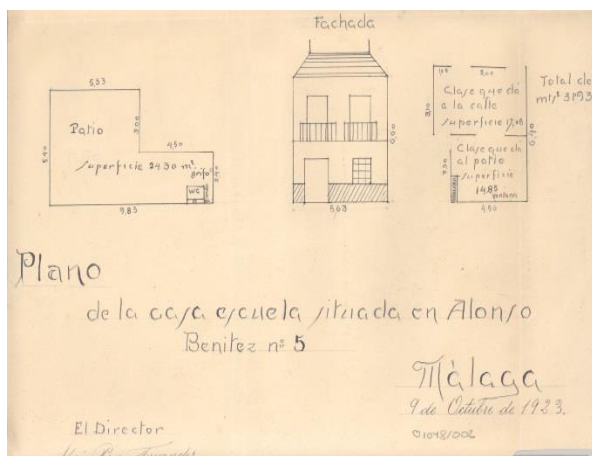 Fachada
5,33
Patio
3,00
4,50
5,40
superficie 24.30 m²
grifo
WC
2,40
9,83
6,00
5,63
1,05
3,00
Clase que dá
a la calle
superficie 17,08
3,10
Total de
mts² 31,93
6,40
Clase que da
al patio
superficie
14,85
ventana
3,30
4,50
Plano
de la casa escuela situada en Alonso
Benitez nº 5
Málaga
9 de Octubre de 1923.
01048/002
El Director